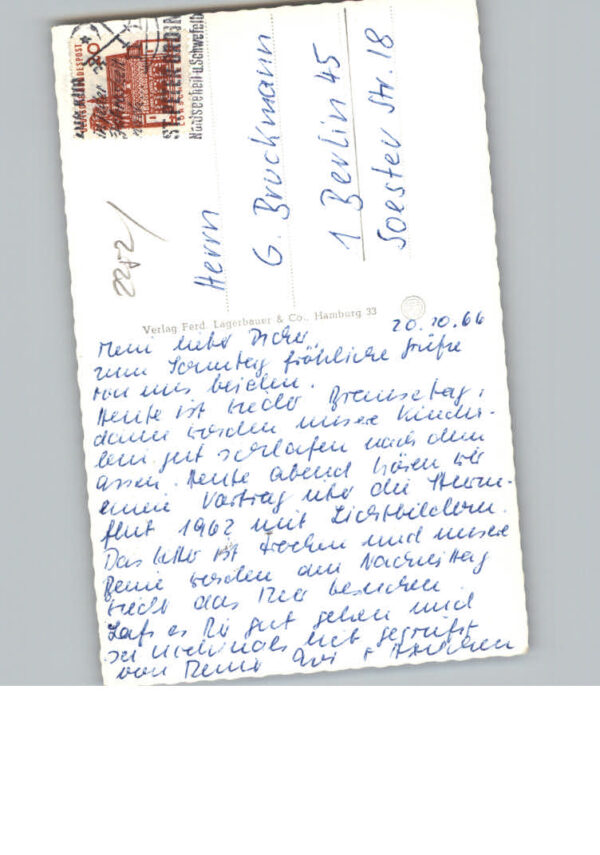 ST. PETER-ORDING
Nordseeheil- u. Schwefelbad
2252/
Herrn
G. Bruckmann
1 Berlin 45
Soester Str. 18
Verlag Ferd. Lagerbauer & Co., Hamburg 33
20.10.66
Mein lieber
zum Sonntag fröhliche Grüße
von uns beiden.
Heute ist wieder
dann werden unsere Kinder-
lein gut schlafen nach dem
Essen. Heute abend hören wir
einen Vortrag über die Sturm-
flut 1962 mit Lichtbildern.
Das Wetter ist trocken und unsere
Beine werden am Nachmittag
wieder das Meer besuchen.
Laß es Dir gut gehen und
sei nochmals lieb gegrüßt
von Deiner